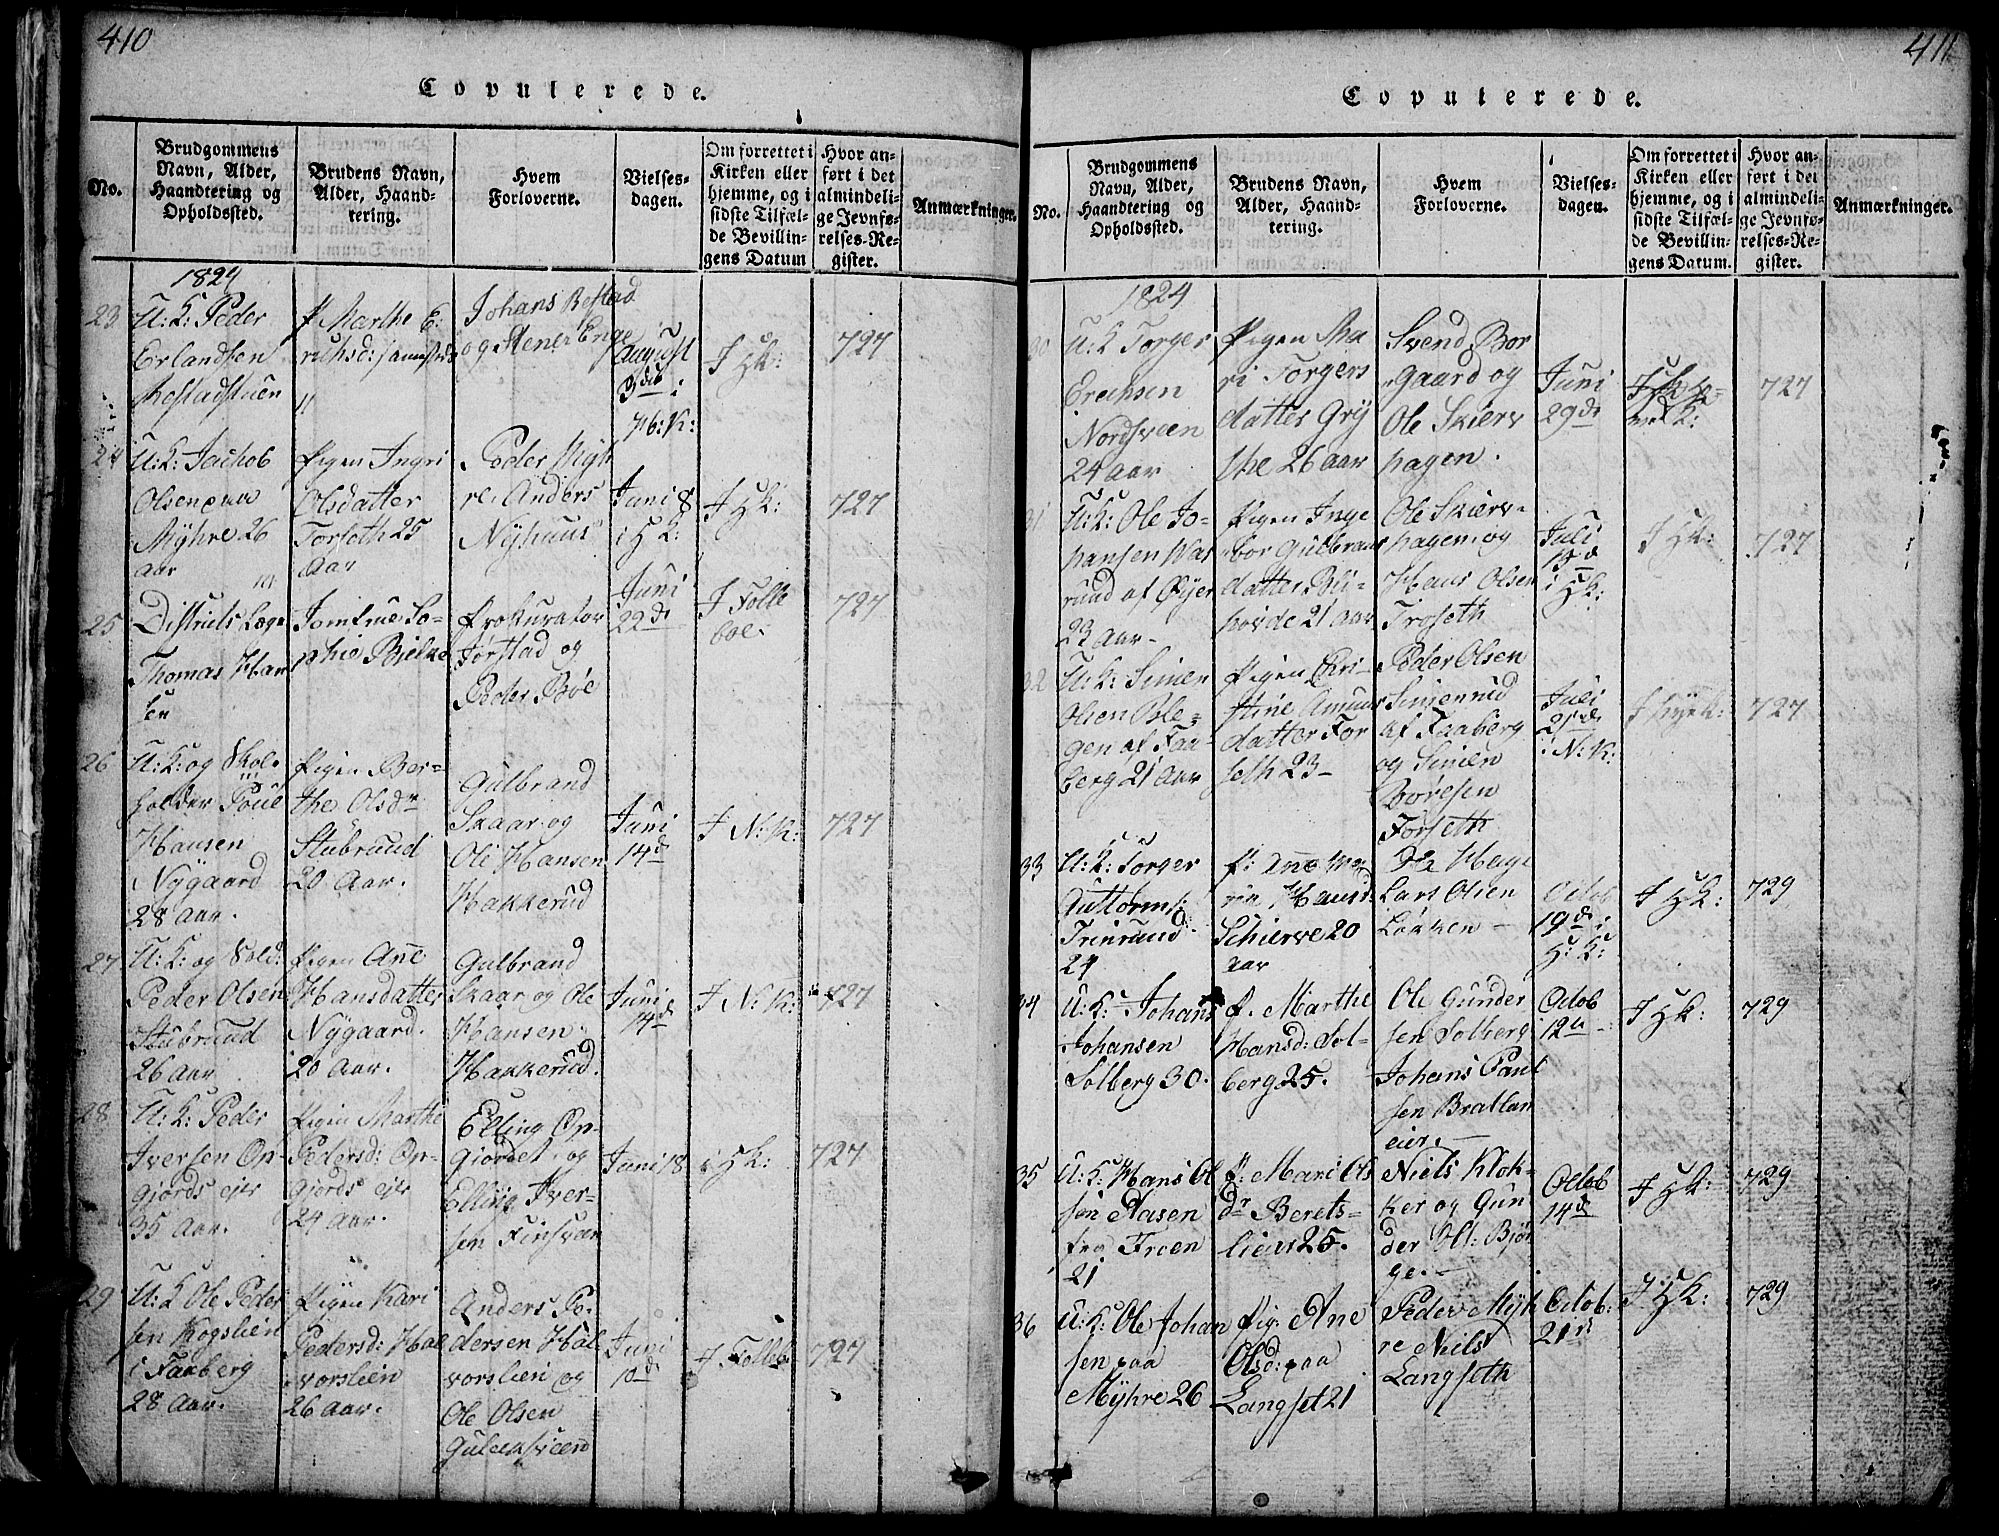 410
Copulerede.
No.
Brudgommens
Navn, Alder,
Haandtering og
Opholdssted.
Brudens Navn,
Alder, Haand-
tering.
Hvem
Forloverne.
Vielses-
dagen.
Om forrettet i
Kirken eller
hjemme, og i
sidste Tilfæl-
de Bevillin-
gens Datum
Hvor an-
ført i det
almindeli-
ge Jevnfø-
relses-Re-
gister.
Anmærkninger.
1824
23
U: K: Peder
Erlandsen
P Marthe E:
richsd:
Johans Bestad
og Stener Enge
August
I HK:
727
24
U: K: Jachob
Olsen paa
Myhre 26
aar
Pigen Ingri
Olsdatter
Torseth 25
Aar
Peder Myh
re. Anders
Nyhuus
Juni 8
i H K:
I HK:
727
25
Districts Læge
Thomas Han
sen
Jomfrue So-
phie Bielke
Prokurator
Jørstad og
Peder Bøe
Juni
22de
I Folle
boe.
727
26
U: K: og Skol-
holder Poul
Hansen
Nygaard
28 Aar.
Pigen Ber-
the Olsdr
Stubruud
20 Aar.
Gulbrand
Skaar og
Ole Hansen
Hakkerud
Juni
14d
I N: K:
727
27
U: K: og Sold:
Peder Olsen
Stubruud
26 Aar
Pigen Ane
Hansdatter
Nygaard.
20 Aar.
Gulbrand
Skaar og Ole
Hansen
Hakkerud.
Juni
14d
I N: K:
727
28
U: K: Peder
Iversen Op-
gjords ejer
35 Aar.
Pigen Marthe
Pedersd: Op-
gjords ejer
24 Aar.
Elling Op-
giordet og
Elling Iver-
sen Finsveen
Juni 18
i HK:
727
29
U: K Ole Peder
sen Kogslien
i Faaberg
28 Aar.
Pigen Kari
Pedersd: Hal
vorslien
26 Aar.
Anders Pe-
dersen Hal
vorslien og
Ole Olsen
Juni
10d
I Folleb
727
411
Copulerede.
No.
Brudgommens
Navn, Alder,
Haandtering og
Opholdssted.
Brudens Navn,
Alder, Haand-
tering.
Hvem
Forloverne.
Vielses-
dagen.
Om forrettet i
Kirken eller
hjemme, og i
sidste Tilfæl-
de Bevillin-
gens Datum.
Hvor an-
ført i det
almindeli-
ge Jevnfø-
relses-Re-
gister.
Anmærkninger.
1824
30
U: K Torger
Erichsen
Nordsveen
24 Aar
Pigen Ma
ri Torgers
datter Gry
the 26 aar
Svend Bor
gaard og
Ole Skierv
hagen.
Juni
29d
727
31
U: K: Ole Jo-
hansen Was
ruud af Øyer
23 Aar-
Pigen Inge
bor Gulbrans
datter Bli-
hovde 21 aar
Ole Skierv-
hagen og
Hans Olsen
Troseth
Juli
13d
i HK:
I HK:
727
32
U: K: Simen
Olsen Ble-
gen af Faa-
berg 21 Aar
Pigen Chri-
stine Amuns
datter For
seth 23-
Peder Olsen
Simenrud
af Faaberg
og Simen
Børesen
Forseth
Juli
i N: K:
727
33
U: K: Torger
Guttorms:
Trinruud
24
P: Ane Ma
ria Hansd
Schierve 20
aar
Hage
Lars Olsen
Løkken -
Octob
19d i
H: K:
I HK:
729
34
U: K: Johans
Johansen
Solberg 30.
P. Marthe
Hansd: Sol-
berg 25.
Ole Gunder
sen Solberg
Johans Paul
sen Bratlan
eier. -
Octob
12te
I HK:
729
35
U: K: Hans Ol
sen Aasen
fra Froen
21
P. Mari Ols
dr Berets-
lien 25.
Niels Klok-
ker og Gun
der Ol: Bjør
ge. -
Octob
14d
I HK:
729
36
U: K: Ole Johan
sen paa
Myhre 26
Pig: Ane
Olsd: paa
Langset 21
Peder Myh
re Niels
Langseth
Octob:
21d
I HK:
729